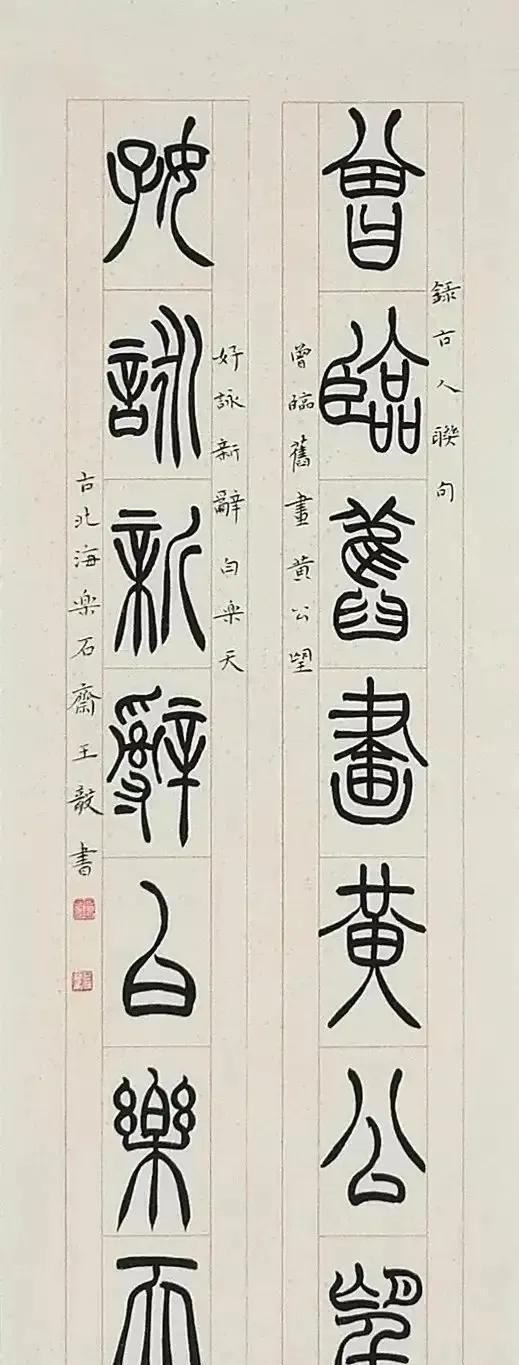 錄古人聯句
曾臨舊畫黃公望
曾臨舊畫黃公望
好詠新辭白樂天
好詠新辭白楽天
古北海楽石齋王毅書